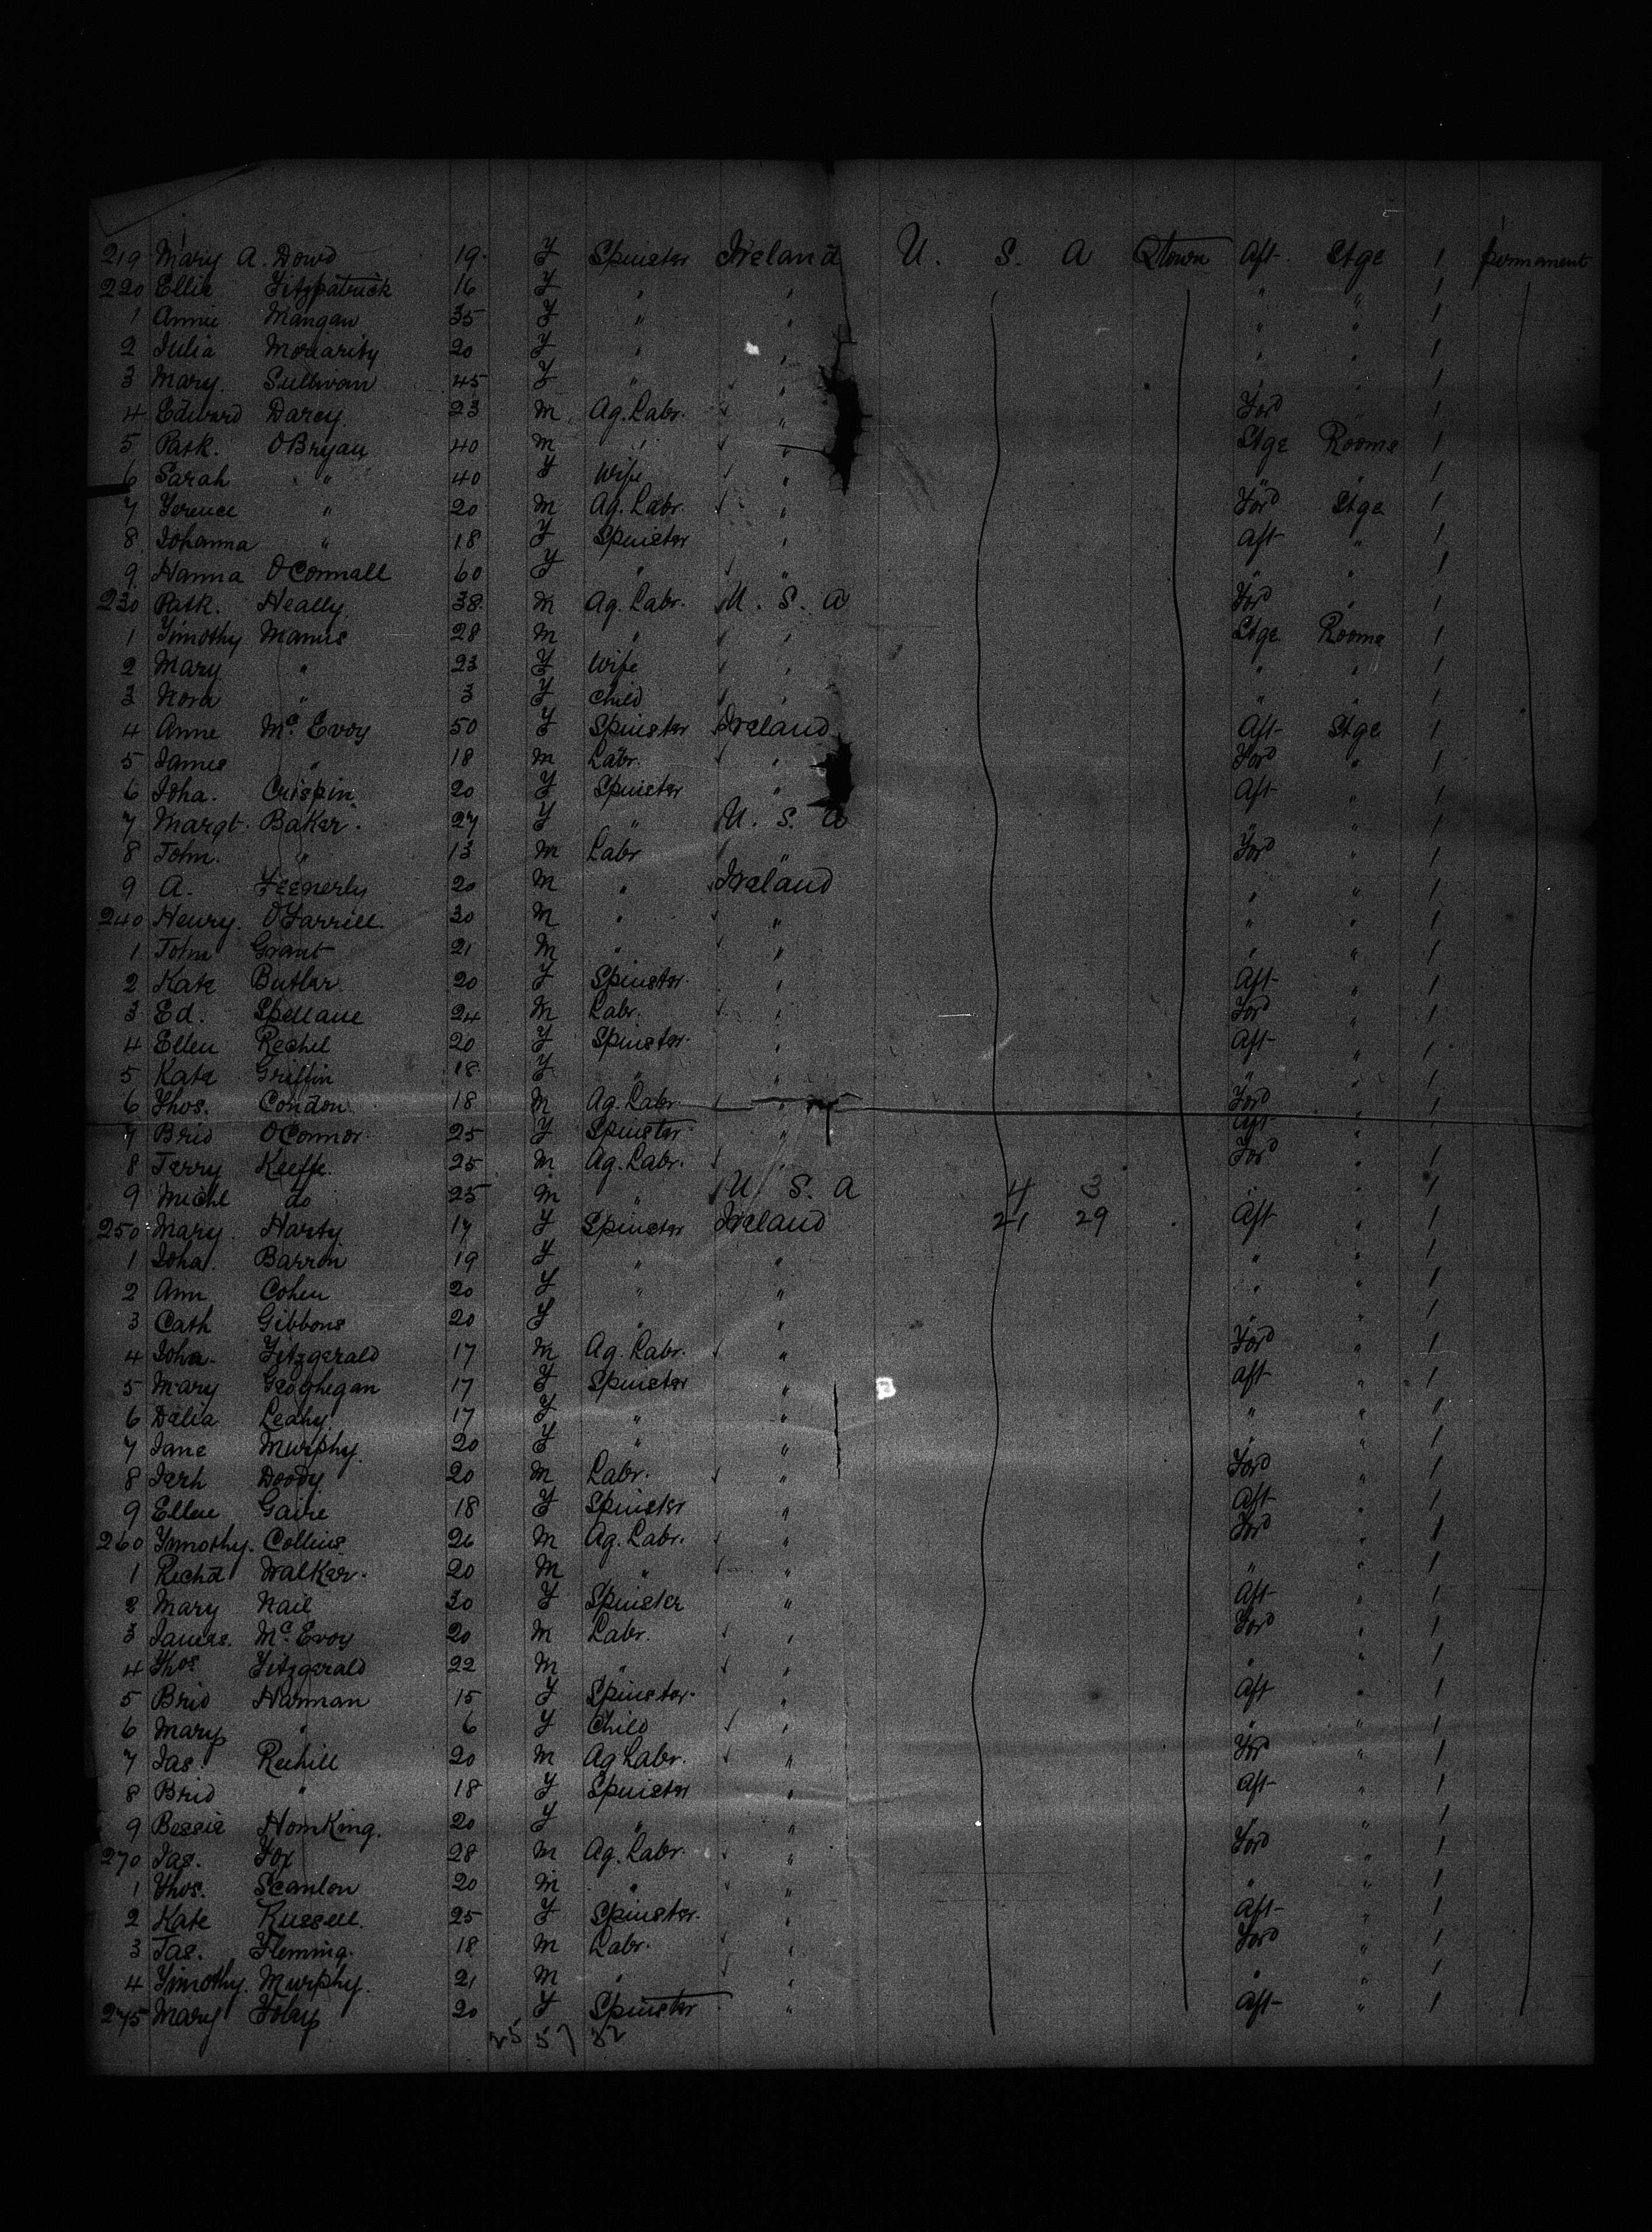 219 Mary A. Dowd 19 F Spinster Ireland U. S. A Qtown Aft Stge 1 permanent
220 Ellie Fitzpatrick 16 F " " " " 1
1 Annie Mangan 35 F " " " " 1
2 Julia Moriarity 20 F " " " " 1
3 Mary Sullivan 45 F " " " " 1
4 Edward Darcy 23 M Ag. Labr. " Ford " 1
5 Patk. O'Bryan 40 M " " Stge Rooms 1
6 Sarah " 40 F Wife " " " 1
7 Terence " 20 M Ag. Labr. " Ford Stge 1
8 Johanna " 18 F Spinster " Aft " 1
9 Hanna O'Connall 60 F " " " " 1
230 Patk. Heally 38 M Ag. Labr. U. S. A Ford " 1
1 Timothy Manus 28 M " " Stge Rooms 1
2 Mary " 23 F Wife " " " 1
3 Nora " 3 F Child " " " 1
4 Anne Mc Evoy 50 F Spinster Ireland Aft Stge 1
5 James " 18 M Labr. " Ford " 1
6 Joha. Crispin 20 F Spinster " Aft " 1
7 Margt. Baker 27 F " U. S. A " " 1
8 John. " 13 M Labr " Ford " 1
9 A. Feenerly 20 M " Ireland " " 1
240 Henry O'Farrill 30 M " " " " 1
1 John Grant 21 M " " " " 1
2 Kate Butler 20 F Spinster " Aft " 1
3 Ed. Spellane 24 M Labr. " Ford " 1
4 Ellen Rechil 20 F Spinster " Aft " 1
5 Kate Griffin 18 F " " " " 1
6 Thos. Condon 18 M Ag. Labr. " Ford " 1
7 Brid O'Connor 25 F Spinster " Aft " 1
8 Jerry Keeffe 25 M Ag. Labr. " Ford " 1
9 Michl do 25 M " U. S. A 4 3 " " 1
250 Mary Harty 17 F Spinster Ireland 21 29 Aft " 1
1 Joha. Barron 19 F " " " " 1
2 Ann Cohen 20 F " " " " 1
3 Cath Gibbons 20 F " " " " 1
4 John Fitzgerald 17 M Ag. Labr. " Ford " 1
5 Mary Geoghegan 17 F Spinster " Aft " 1
6 Delia Leahy 17 F " " " " "
7 Jane Murphy 20 F " " " " 1
8 Jerh Doody 20 M Labr. " Ford " 1
9 Ellen Gaire 18 F Spinster " Aft " 1
260 Timothy Collins 26 M Ag. Labr. " Ford " 1
1 Richd Walker 20 M " " " " 1
2 Mary Nail 30 F Spinster " Aft " 1
3 James. Mc Evoy 20 M Labr. " Ford " 1
4 Thos Fitzgerald 22 M " " " " 1
5 Brid Harman 15 F Spinster " Aft " 1
6 Mary " 6 F Child " " " 1
7 Jas. Rechill 20 M Ag Labr. " Ford " 1
8 Brid " 18 F Spinster " Aft " 1
9 Bessie HomKing. 20 F " " " " 1
270 Jas. Fox 28 M Ag. Labr. " Ford " 1
1 Thos. Scanlon 20 M " " " " 1
2 Kate Russell 25 F Spinster. " Aft " 1
3 Jas. Fleming 18 M Labr. " Ford " 1
4 Timothy Murphy 21 M " " " " 1
275 Mary Foley 20 F Spinster " Aft " 1
25 57 32